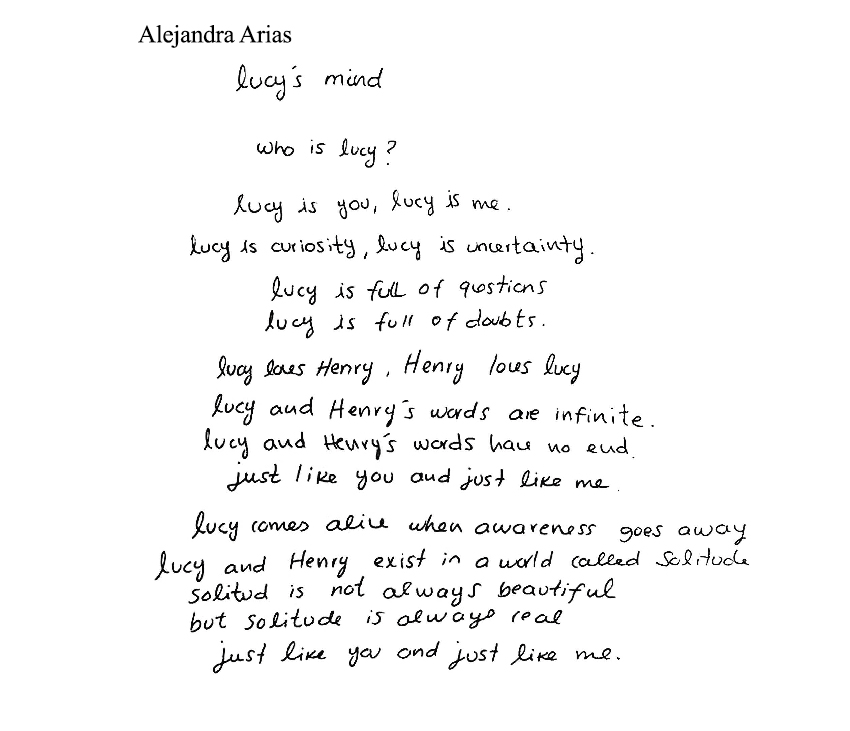 Alejandra Arias
lucy's mind
who is lucy?
lucy is you, lucy is me.
lucy is curiosity, lucy is uncertainty.
lucy is full of questions
lucy is full of doubts.
lucy loves Henry, Henry loves lucy
lucy and Henry's words are infinite.
lucy and Henry's words have no end.
just like you and just like me.
lucy comes alive when awareness goes away
lucy and Henry exist in a world called Solitude
solitud is not always beautiful
but solitude is always real
just like you and just like me.